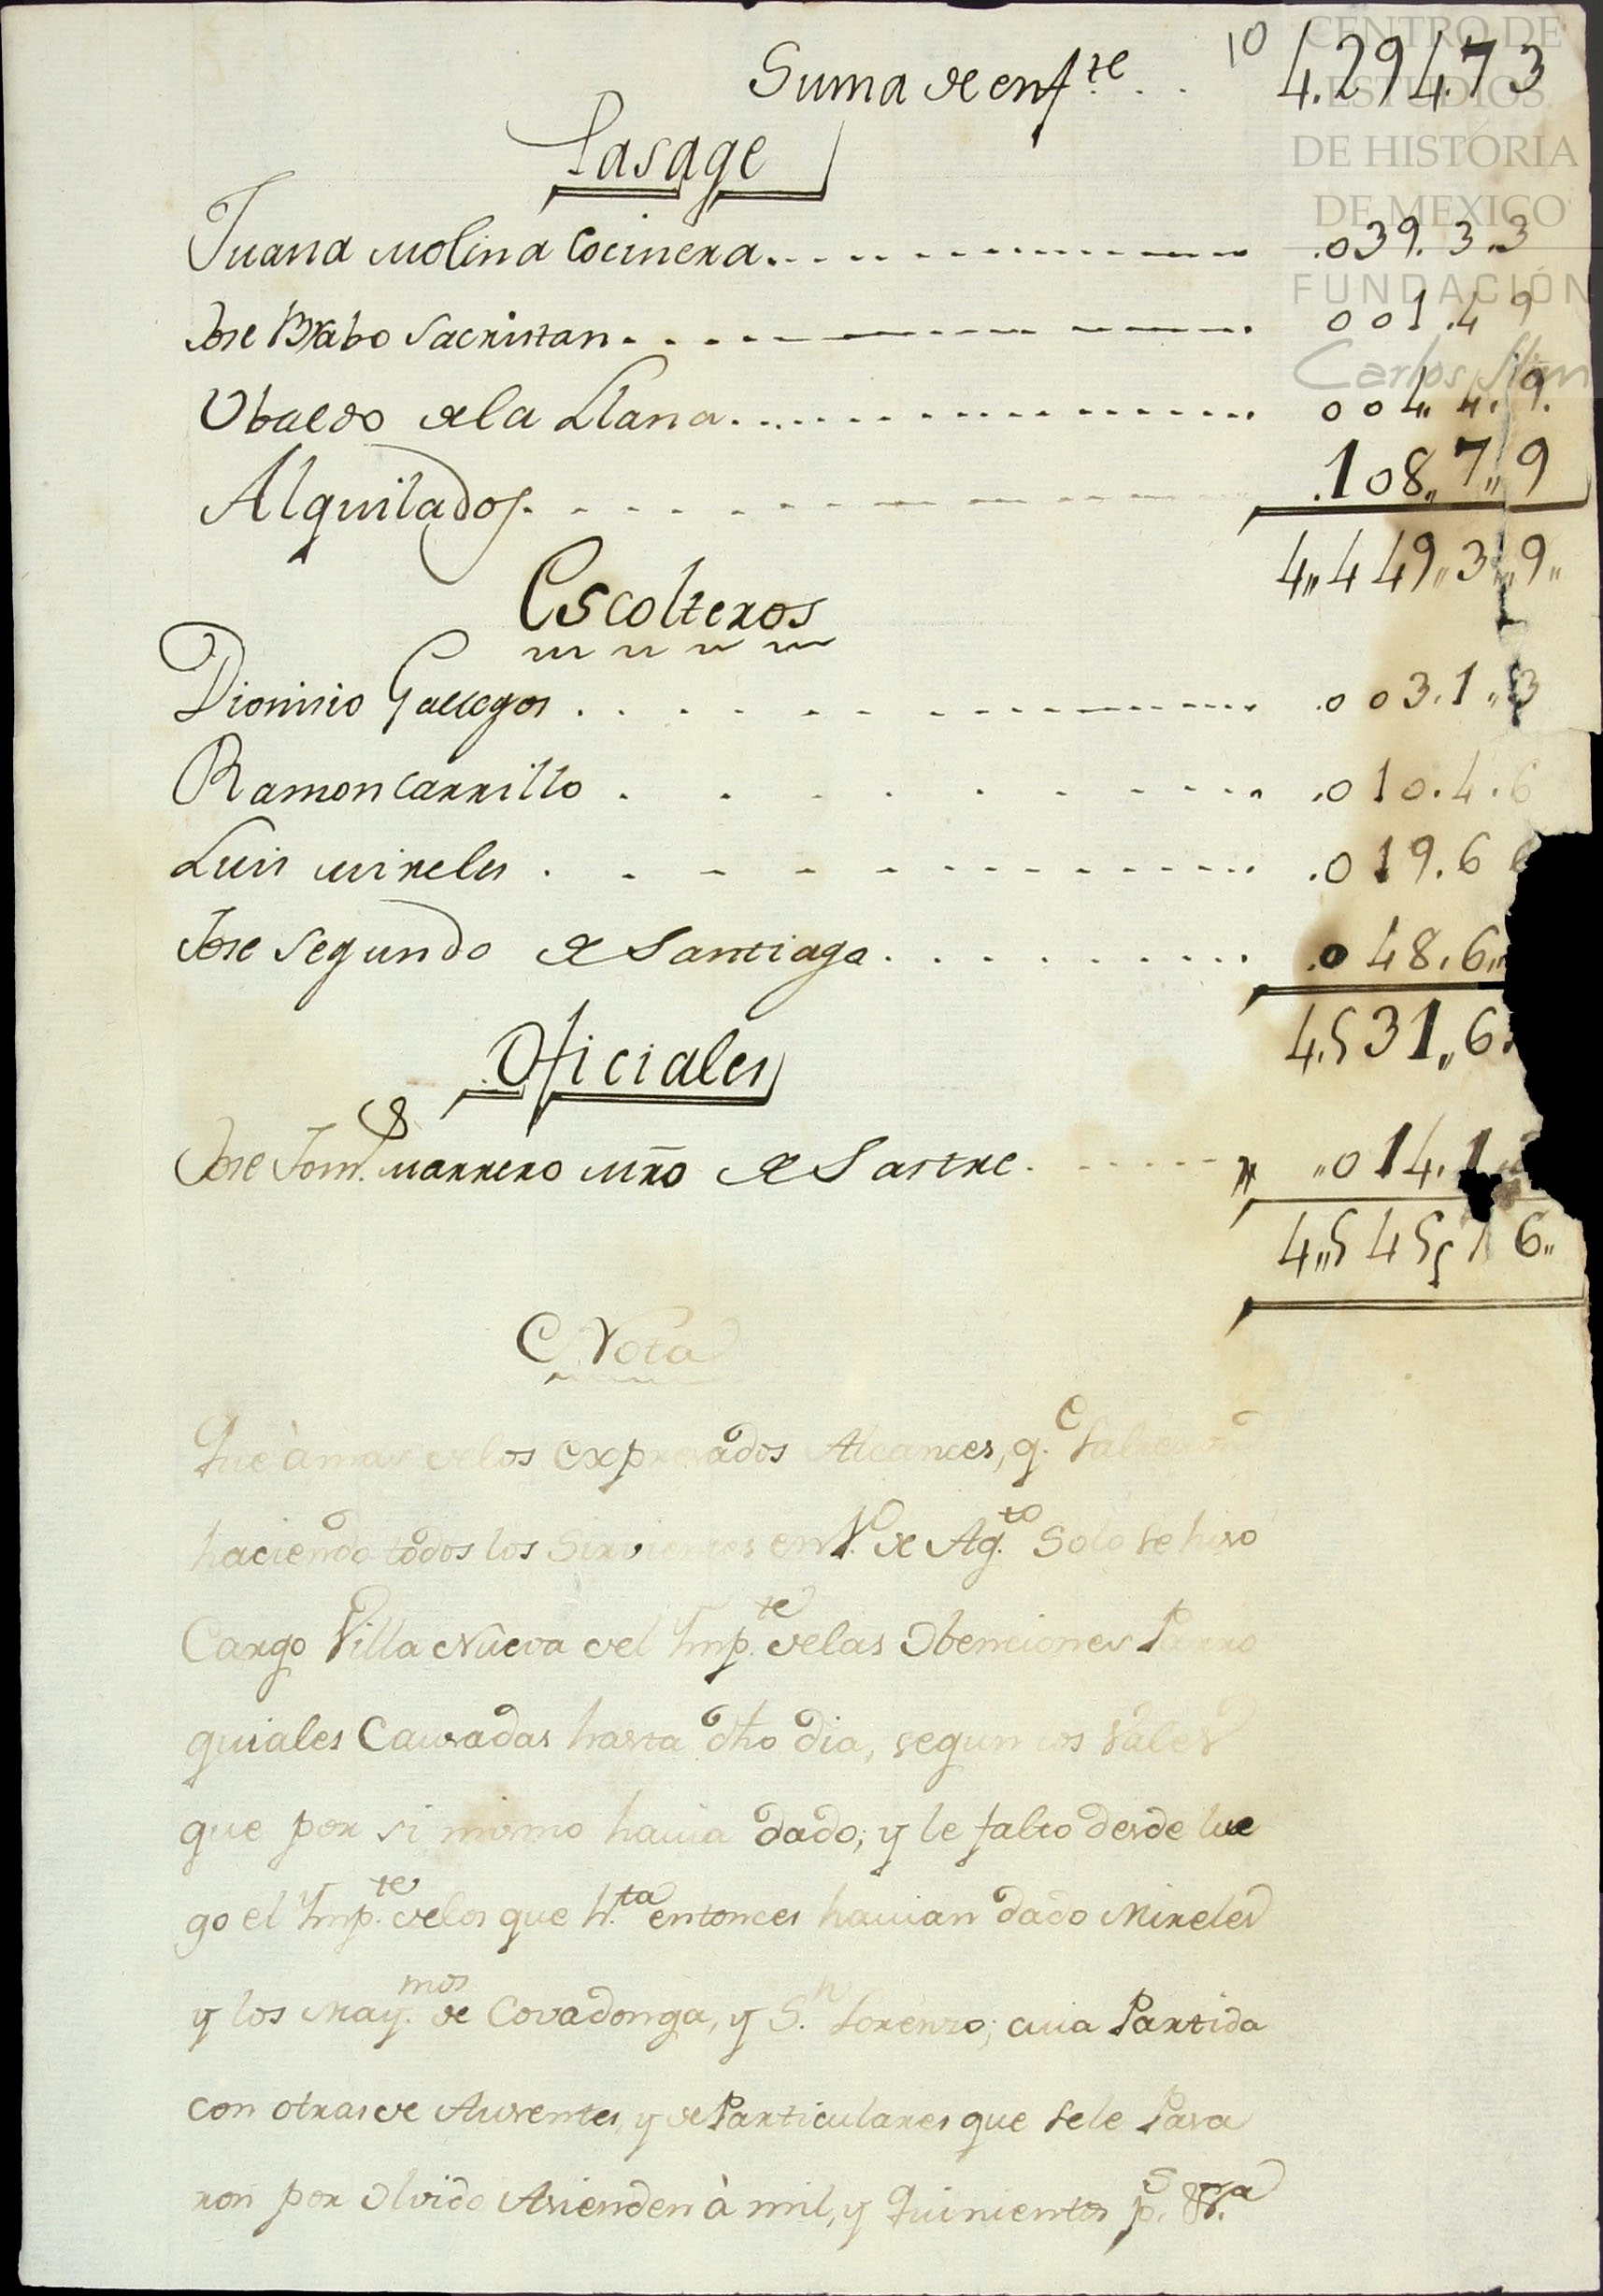 10
CENTRO DE
ESTUDIOS
DE HISTORIA
DE MEXICO
FUNDACIÓN
Carlos Slim
Suma de enf.te . . 4.294.7 3
Pasage
Juana Molina Cocinera 039. 3. 3
Jose Brabo Sacristan 001. 4 9
Ubaldo de la Llana 004. 4. 9.
Alquilados .108,, 7,, 9
4,, 449,, 3,, 9,,
Escolteros
Dionisio Gallegos .003. 1,, 3
Ramon Carrillo .010. 4. 6
Luis Mireles .019. 6
Jose Segundo de Santiago .048. 6,,
4.531,, 6
Oficiales
Jose Marrero Mro de Sastre ,,014. 1
4,,545,, 7 6,,
Nota
Que à mas de los expresados Alcances, q.e
haciendo todos los Sirvientes en 1.o de Ag.to Solo se hiso
Cargo Villa Nueva del Ymp.te de las Obenciones Parro
quiales Causadas hasta dho dia, segun los Vales
que por si mismo havia dado; y le falto desde lue
go el Ymp.te de los que h.ta entonces havian dado Mireles
y los May.mos de Covadonga, y S.n Lorenzo; cuia Partida
con otras de Ausentes, y de Particulares que se le Pasa
ron por Olvido Asienden à mil, y Quinientos p.s